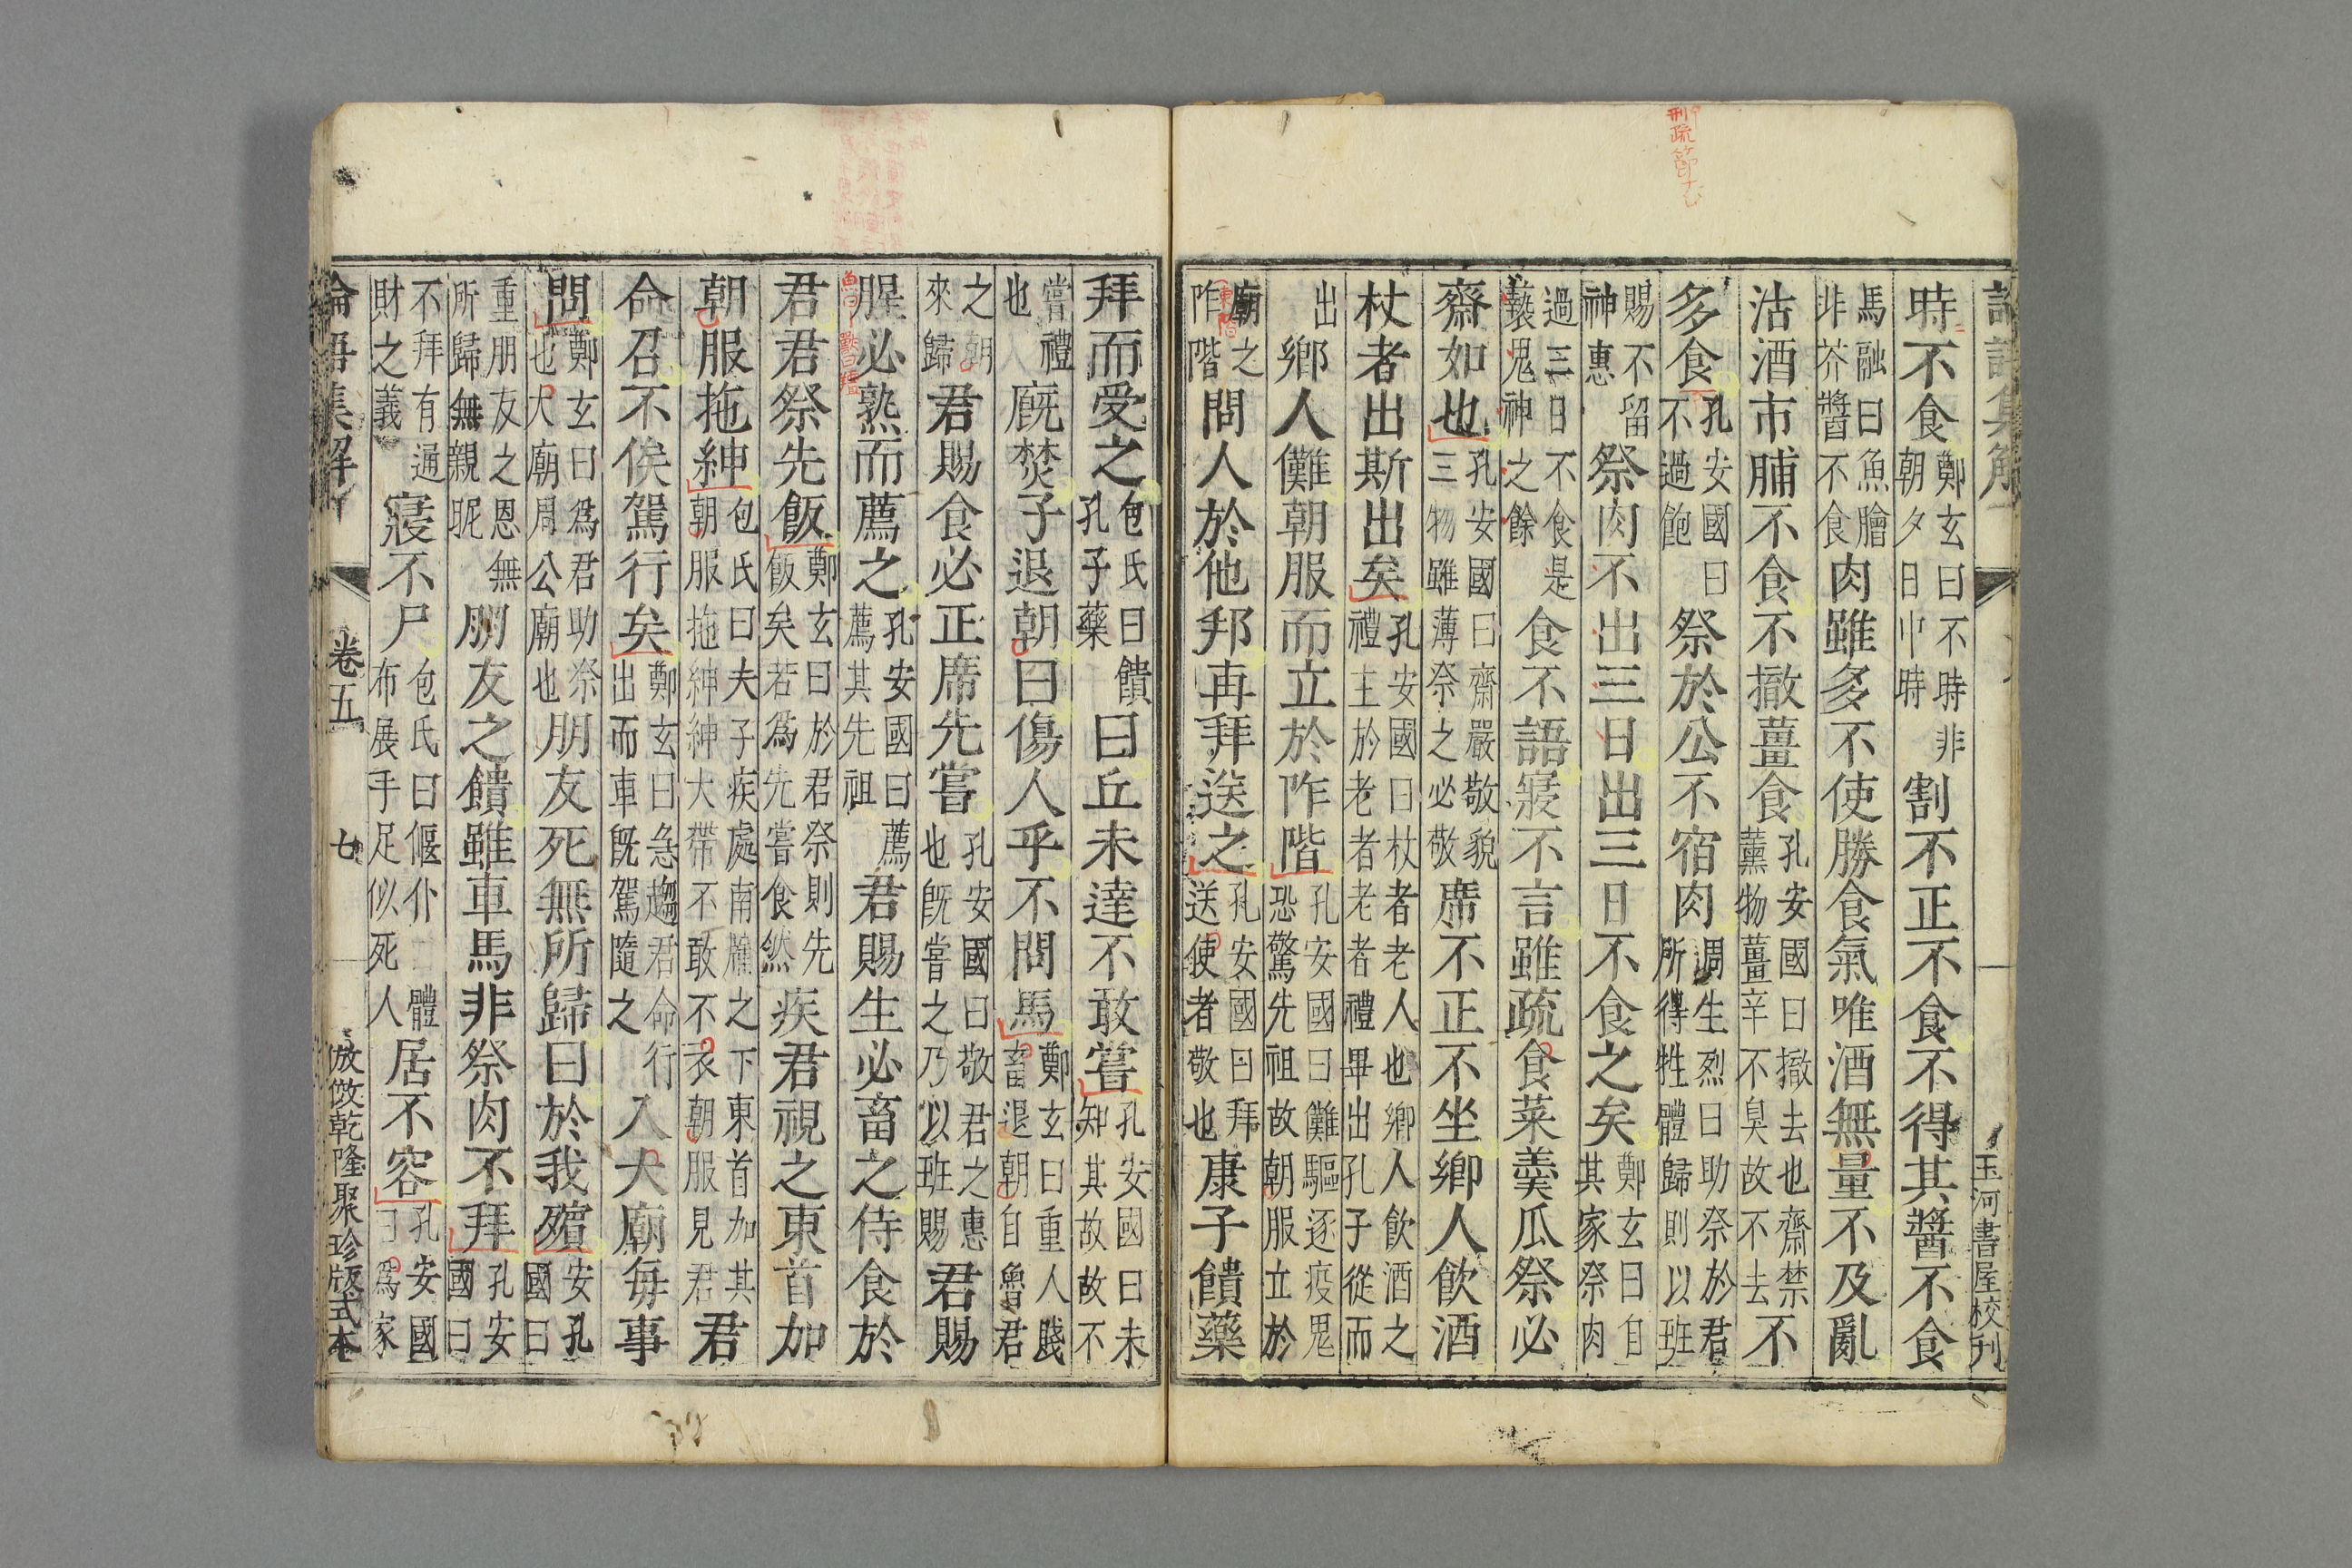 刑疏節ナし
論語集解　玉河書屋校刊
時不食鄭玄曰不時非朝夕日中時割不正不食不得其醬不食
馬融曰魚膾非芥醬不食肉雖多不使勝食氣唯酒無量不及亂
沽酒市脯不食不撤薑食孔安國曰撤去也齋禁薰物薑辛不臭故不去不
多食孔安國曰不過飽祭於公不宿肉周生烈曰助祭於君所得牲體歸則以班
賜不留神惠祭肉不出三日出三日不食之矣鄭玄曰自其家祭肉
過三日不食是褻鬼神之餘食不語寢不言雖疏食菜羹瓜祭必
齋如也孔安國曰齋嚴敬貌三物雖薄祭之必敬席不正不坐鄉人飲酒
杖者出斯出矣孔安國曰杖者老人也鄉人飲酒之禮主於老者老者禮畢出孔子從而
出鄉人儺朝服而立於阼階孔安國曰儺驅逐疫鬼恐驚先祖故朝服立於
廟之阼階問人於他邦再拜送之孔安國曰拜送使者敬也康子饋藥
東階
拜而受之包氏曰饋孔子藥曰丘未達不敢嘗孔安國曰未知其故故不
嘗禮也廐焚子退朝曰傷人乎不問馬鄭玄曰重人賤畜退朝自魯君
之朝來歸君賜食必正席先嘗孔安國曰敬君之惠也既嘗之乃以班賜君賜
腥必熟而薦之孔安國曰薦薦其先祖君賜生必畜之侍食於
魚曰
君君祭先飯鄭玄曰於君祭則先飯矣若為先嘗食然疾君視之東首加
朝服拖紳包氏曰夫子疾處南牖之下東首加其朝服拖紳紳大帶不敢不衣朝服見君君
命召不俟駕行矣鄭玄曰急趨君命行出而車既駕隨之入大廟每事
問鄭玄曰為君助祭也大廟周公廟也朋友死無所歸曰於我殯孔安國曰
重朋友之恩無所歸無親昵朋友之饋雖車馬非祭肉不拜孔安國曰
不拜有通財之義寢不尸包氏曰偃仆布展手足似死人居不容孔安國曰為家
論語集解　卷五　七　放傚乾隆聚珍版式本